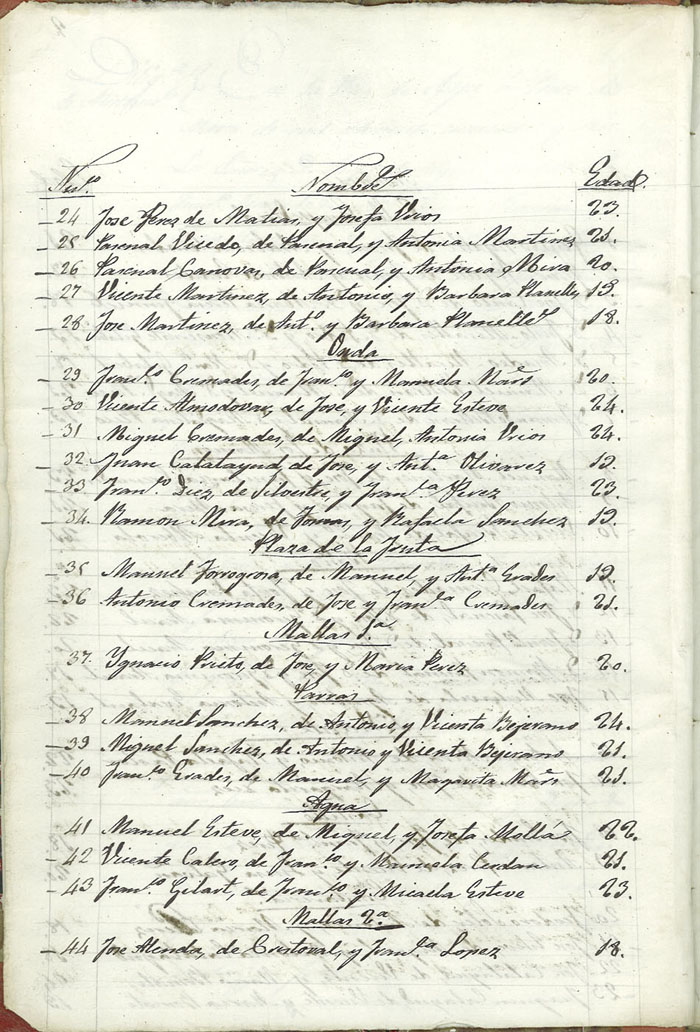 Num.º Nombres Edad.
24 Jose Perez de Matias, y Josefa Vrios 23.
25 Pascual Vicedo, de Pascual, y Antonia Martinez 21.
26 Pascual Canovas, de Pascual, y Antonia Mira 20.
27 Vicente Martinez, de Antonio, y Barbara Planelles 19.
28 Jose Martinez, de Ant.º y Barbara Planelles 18.
Onda
29 Fran.co Cremades, de Fran.co y Manuela 20.
30 Vicente Almodovar, de Jose, y Vicente Esteve 24.
31 Miguel Cremades, de Miguel, Antonia Vrios 24.
32 Juan Catalayud, de Jose, y Ant.ª Olivarez 19.
33 Fran.co Diez, de Silvestre, y Fran.ca Perez 23.
34. Ramon Mira, de Tomas, y Rafaela Sanchez 19.
Plaza de la Fruta
35 Manuel Torregrosa, de Manuel, y Ant.ª Erades 19.
36 Antonio Cremades, de Jose y Fran.ca Cremades 21.
Mallas 1.ª
37. Ygnacio Prieto, de Jose, y Maria Perez 20.
Parras
38 Manuel Sanchez, de Antonio y Vicenta Bejerano 24.
39 Miguel Sanchez, de Antonio y Vicenta Bejerano 21.
40 Fran.co Erades, de Manuel, y Margarita 21.
Agua
41 Manuel Esteve, de Miguel, y Josefa Mollá 22.
42 Vicente Calero, de Fran.co y Manuela Cerdan 21.
43 Fran.co Gilart, de Fran.co y Micaela Esteve 23.
Mallas 2.ª
44 Jose Alenda, de Cristoval, y Fran.ca Lopez 18.